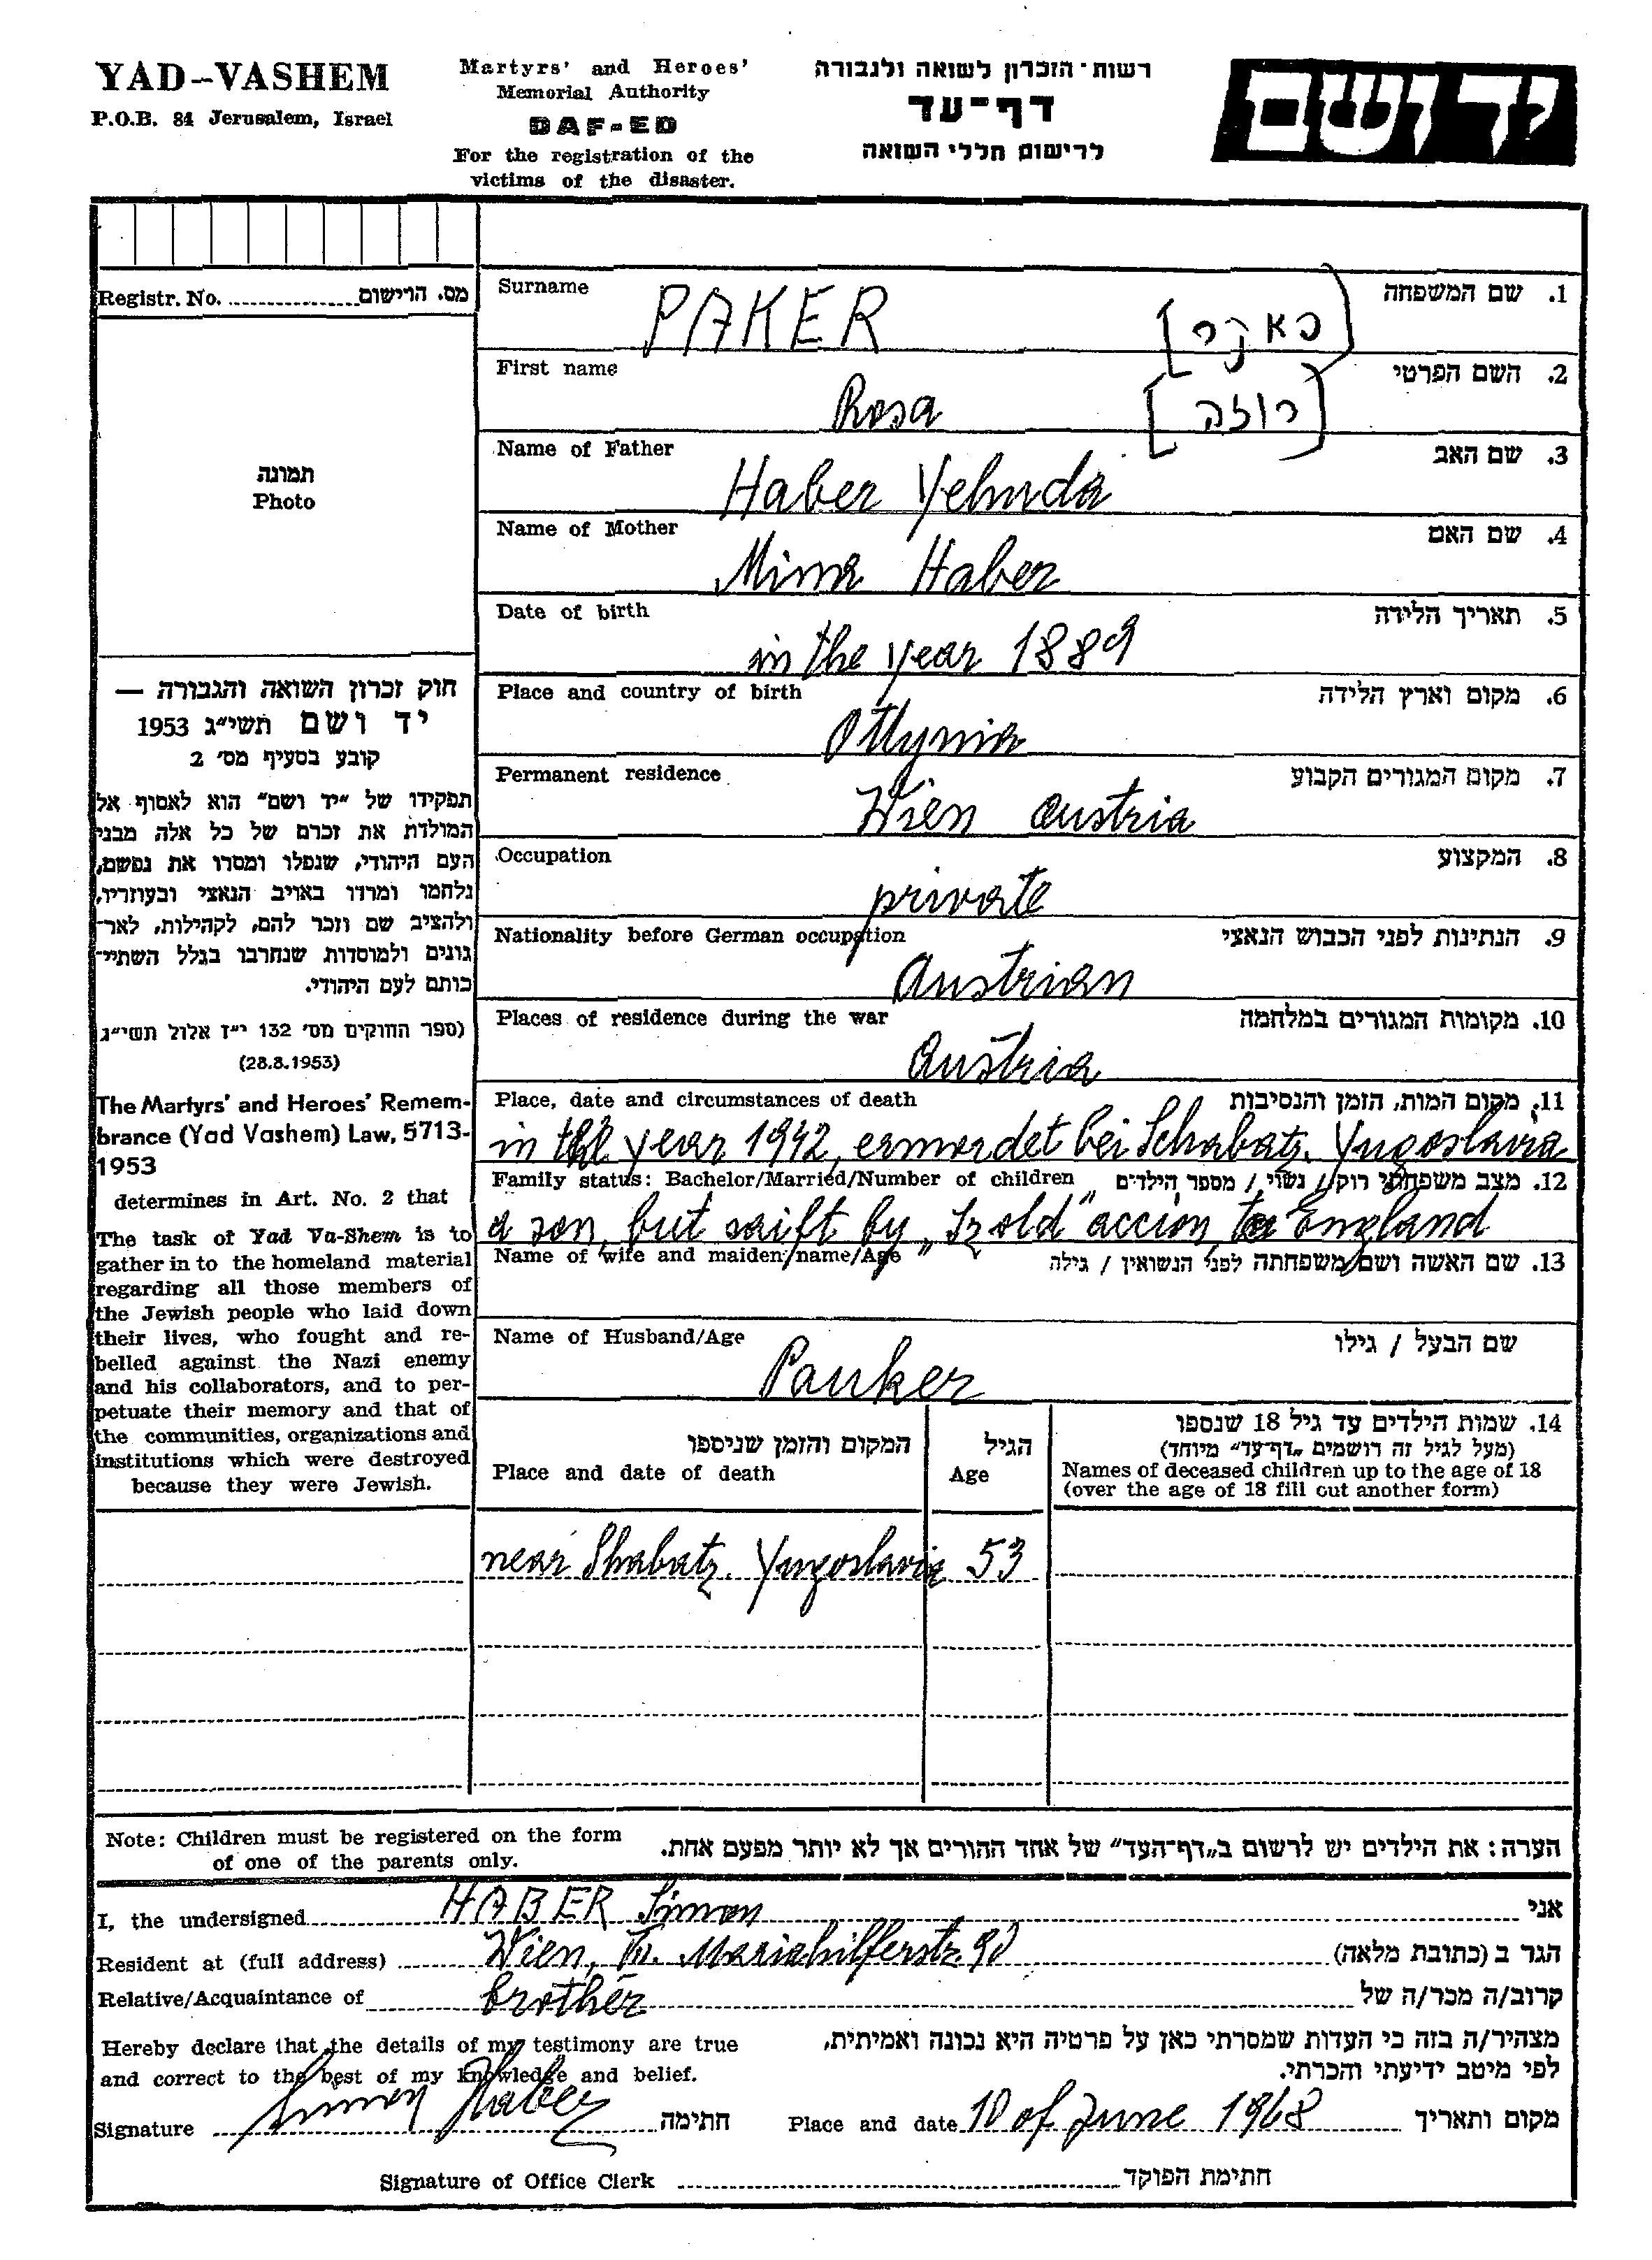 YAD-VASHEM
P.O.B. 84 Jerusalem, Israel
Martyrs' and Heroes'
Memorial Authority
DAF-ED
For the registration of the
victims of the disaster.
רשות-הזכרון לשואה ולגבורה
דף-עד
לרישום חללי השואה
יד ושם
Registr. No. מס. הרישום
תמונה
Photo
חוק זכרון השואה והגבורה —
יד ושם תשי״ג 1953
קובע בסעיף מס׳ 2
תפקידו של ״יד ושם״ הוא לאסוף אל
המולדת את זכרם של כל אלה מבני
העם היהודי, שנפלו ומסרו את נפשם,
נלחמו ומרדו באויב הנאצי ובעוזריו,
ולהציב שם וזכר להם, לקהילות, לאר-
גונים ולמוסדות שנחרבו בגלל השתיי-
כותם לעם היהודי.
(ספר החוקים מס׳ 132 י״ז אלול תשי״ג
(28.8.1953)
The Martyrs' and Heroes' Remem-
brance (Yad Vashem) Law, 5713-
1953
determines in Art. No. 2 that
The task of Yad Va-Shem is to
gather in to the homeland material
regarding all those members of
the Jewish people who laid down
their lives, who fought and re-
belled against the Nazi enemy
and his collaborators, and to per-
petuate their memory and that of
the communities, organizations and
institutions which were destroyed
because they were Jewish.
Surname 1. שם המשפחה
PAKER [פאקר]
First name 2. השם הפרטי
Rosa [רוזה]
Name of Father 3. שם האב
Haber Yehuda
Name of Mother 4. שם האם
Mima Haber
Date of birth 5. תאריך הלידה
in the year 1889
Place and country of birth 6. מקום וארץ הלידה
Ottynia
Permanent residence 7. מקום המגורים הקבוע
Wien Austria
Occupation 8. המקצוע
private
Nationality before German occupation 9. הנתינות לפני הכבוש הנאצי
Austrian
Places of residence during the war 10. מקומות המגורים במלחמה
Austria
Place, date and circumstances of death 11. מקום המות, הזמן והנסיבות
in the year 1942, ermordet bei Schabatz. Yugoslavia
Family status: Bachelor/Married/Number of children 12. מצב משפחתי רוק/ נשוי / מספר הילדים
a son, but saift by "Izold" accion to England
Name of wife and maiden/name/Age 13. שם האשה ושם משפחתה לפני הנשואין / גילה
Name of Husband/Age שם הבעל / גילו
Pauker
המקום והזמן שניספו
Place and date of death
הגיל
Age
14. שמות הילדים עד גיל 18 שנספו
(מעל לגיל זה רושמים ״דף-עד״ מיוחד)
Names of deceased children up to the age of 18
(over the age of 18 fill out another form)
near Shabatz. Yugoslavia 53
Note: Children must be registered on the form
of one of the parents only.
הערה: את הילדים יש לרשום ב״דף-העד״ של אחד ההורים אך לא יותר מפעם אחת.
I, the undersigned HABER Simon אני
Resident at (full address) Wien, Mariahilferstr. 90 הגר ב (כתובת מלאה)
Relative/Acquaintance of brother קרוב/ה מכר/ה של
Hereby declare that the details of my testimony are true
and correct to the best of my knowledge and belief.
מצהיר/ה בזה כי העדות שמסרתי כאן על פרטיה היא נכונה ואמיתית,
לפי מיטב ידיעתי והכרתי.
Signature Simon Haber חתימה Place and date 10 of June 1968 מקום ותאריך
Signature of Office Clerk חתימת הפוקד